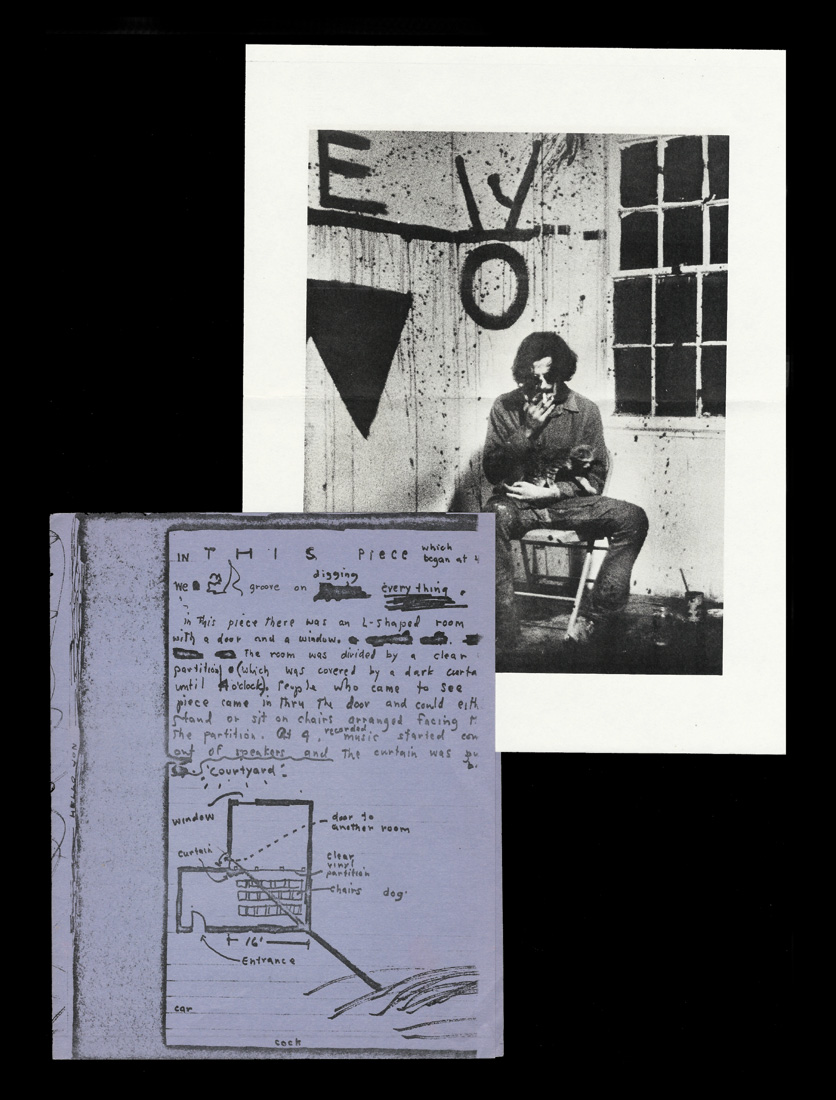 E
V
O
IN T H I S Piece which
began at 4
digging
We groove on everything.
in this piece there was an L-shaped room
with a door and a window.
The room was divided by a clear
partition (which was covered by a dark curta
until 4 o'clock). People who came to see
piece came in thru the door and could eith
stand or sit on chairs arranged facing t
the partition. At 4, recorded music started com
out of speakers and The curtain was pu
"Courtyard"
window
door to
another room
curtain
clear
vinyl
partition
chairs
dog
16'
Entrance
car
cock